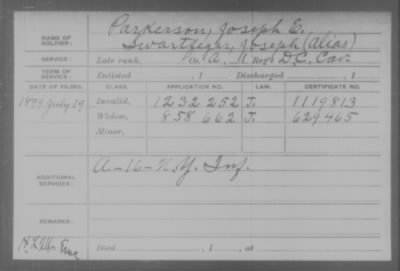 NAME OF SOLDIER: Parkerson, Joseph E.
Swartfiger, Joseph (alias)
SERVICE: Late rank, Co. A, 1 Reg't D.C. Cav.
TERM OF SERVICE: Enlisted , 1 Discharged , 1
DATE OF FILING. CLASS. APPLICATION NO. LAW. CERTIFICATE NO.
1899 July 19 Invalid, 1232252 J. 1119813
Widow, 858662 J. 629465
Minor,
ADDITIONAL SERVICES: A-16-N.Y. Inf.
REMARKS:
Died , 1 , at